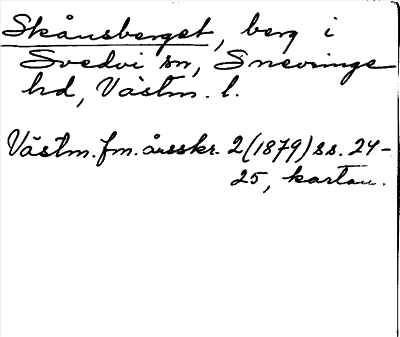 Skånsberget, berg i
Svedvi sn, Snevringe
hd, Västm. l.
Västm. fm. årsskr. 2 (1879) ss. 24-
25, kartan.